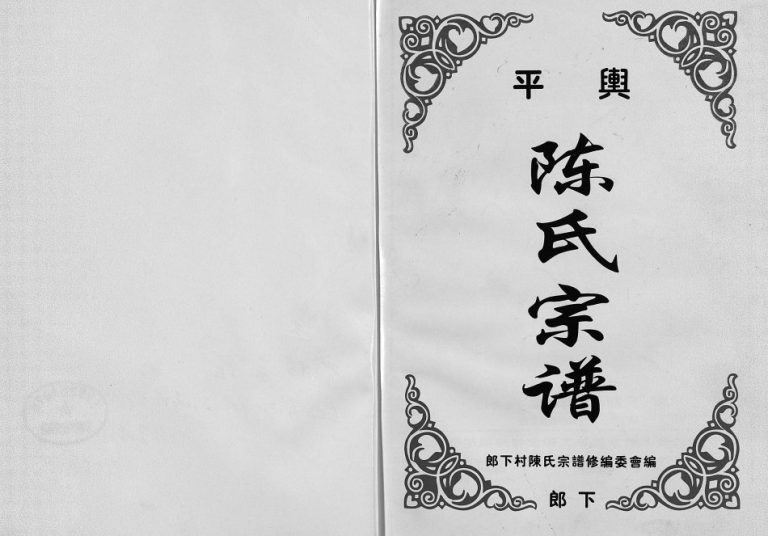 平輿
陈氏宗谱
郎下村陳氏宗譜修編委會編
郎下